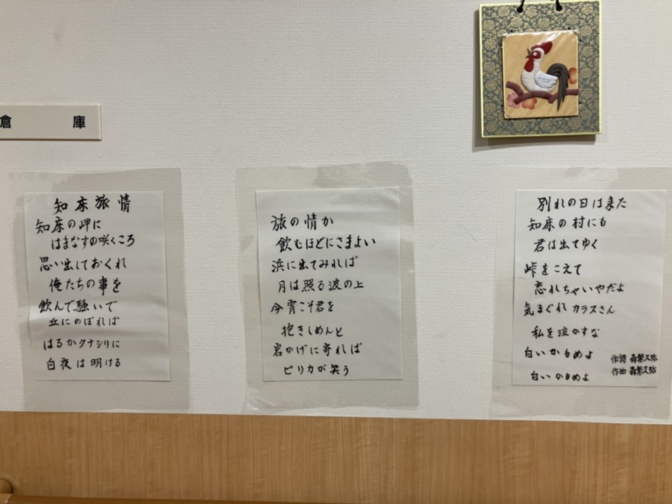 倉庫
知床旅情
知床の岬に
はまなすの咲くころ
思い出しておくれ
俺たちの事を
飲んで騒いで
丘にのぼれば
はるかクナシリに
白夜は明ける
旅の情か
飲むほどにさまよい
浜に出てみれば
月は照る波の上
今宵こそ君を
抱きしめんと
岩かげに寄れば
ピリカが笑う
別れの日は来た
知床の村にも
君は出てゆく
峠をこえて
忘れちゃいやだよ
気まぐれカラスさん
私を泣かすな
白いかもめよ
白いかもめよ
作詞 森繁久弥
作曲 森繁久弥